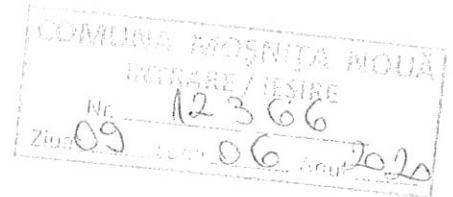 COMUNA MOȘNIȚA NOUĂ
INTRARE / IEȘIRE
Nr. 12366
Ziua 09 Luna 06 Anul 2020